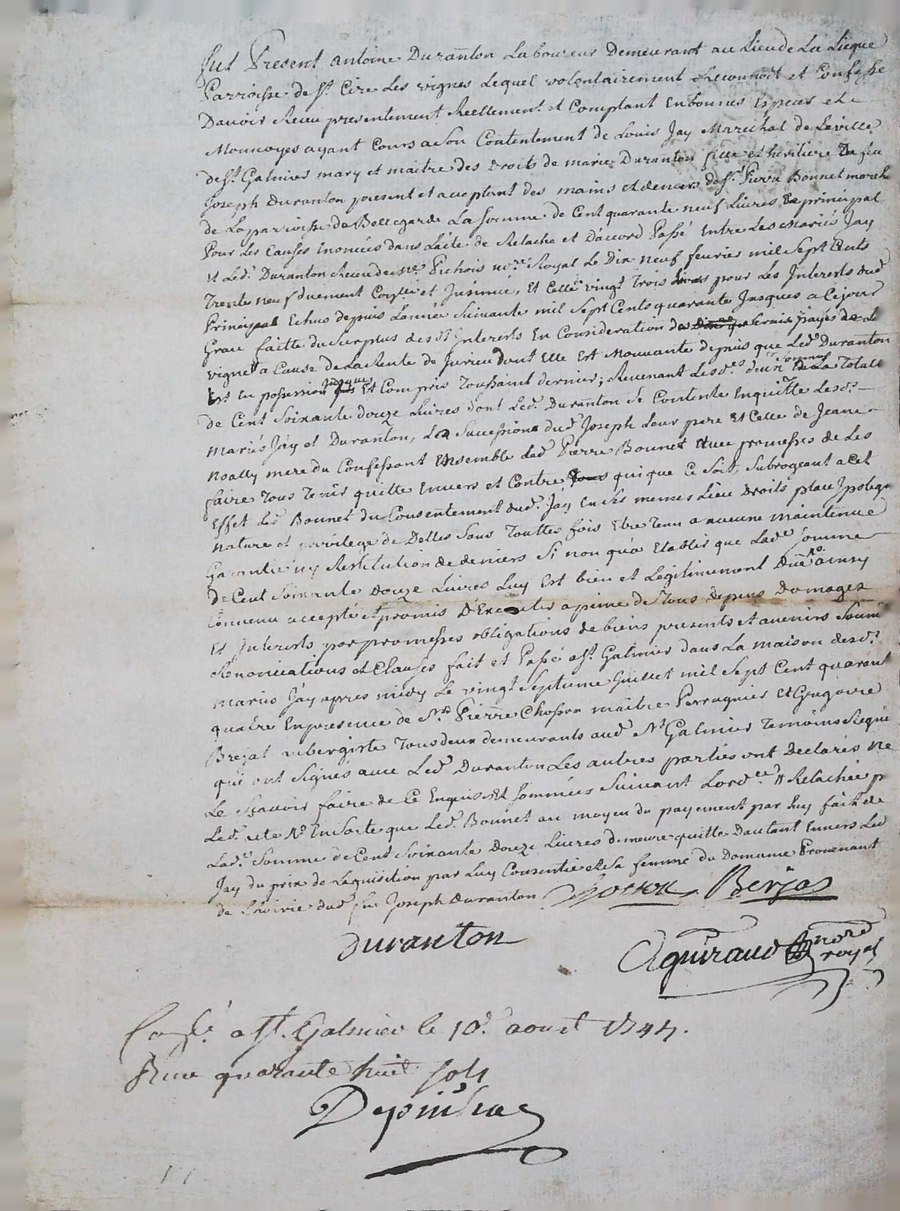 fut Present antoine Duranton Laboureur Demeurant au Lieu de La Lieque
Parroisse de St. Cire Les vignes Lequel volontairement Reconnoit et Confesse
Davoir Receu presentement Reellement et Comptant En bonnes Especes et
Monnoyes ayant Cours a Son Contentement de Louis Jay Marechal de La ville
de St. Galmier mary et maitre des Droits de marie Duranton fille et heritiere De feu
Joseph Duranton present et acceptant des mains et deniers de Sr. Pierre Bonnet march
de La parroisse de Bellegarde La Somme de Cent quarante neuf Livres De principal
Pour Les Causes Enoncées dans L'acte de Relache et D'accord Passé Entre Les Mariés Jay
Et Led. Duranton Receu de me Pichois Royal Le Dix neuf feurier mil Sept Cents
Trente neuf duement et Jnsinue, Et Celle vingt Trois pour Les Interests dud.
Principal Echus depuis Lannee Suivante mil Sept Cents quarante Jusques a Cejour
Grau faitte du Surplus des d. Interests En Consideration frais payés de La
vigne a Cause de La Rente de Jurieu dont Elle Est Mouvante depuis que Led. Duranton
Est En possession jusques Et Compris Toussaint dernier; Revenant Lesd. deux sommes Totale
de Cent Soixante douze Livres dont Led. Duranton Se Contente Enquitte Lesd.
Mariés Jay et Duranton, La Succession dud. Joseph Leur pere Et Celle de Jeane
Noally mere du Confessant Ensemble Led. Pierre Bonnet Avec promesses de Les
faire Tous Tenir quitte Enuers et Contre qui que Ce Soit, Subrogeant a Cet
Effet Led. Bonnet du Consentement dud. Jay En Ses memes Lieu Droits place Jpoteque
Nature et privilege de Delles Sans Touttes fois Etre Tenu a aucune maintenue
Garantie ny Restitution de deniers Si non qu'a Etablir que Lad. Somme
De Cent Soixante Douze Livres Luy Est bien et Legitimement Due ainsy
Convenu accepté et promis D'Executer a peine de Tous depens Domages
Et Interests par promesses obligations de biens presents et avenirs Soum
Renonciations et Clauses fait et Passé a St. Galmier dans La maison desd.
Mariés Jay apres midy Le vingt Septieme Juillet mil Sept Cent quarant
quatre En presence de Sr. Pierre Chosson maitre Perruquier et Gregoire
Brejat aubergiste Tous deux demeurants aud. St Galmier Temoins Requis
qui ont Signés avec Led. Duranton Les autres parties ont Declarés Ne
Le Scavoir faire de Ce Enquis Et Sommées Suivant Lord.ce Relachée p
Led. acte En Sorte que Led. Bonnet au moyen du payement par Luy fait de
Lad. Somme de Cent Soixante Douze Livres demeure quitte Dautant Enuers Led
Jay du prix de Laquisition par Luy Consentie et Sa femme du Domaine Prouenant
de L'hoirie dud. feu Joseph Duranton Chosson Berjas
duranton
Aguiraud nore royal
a St. Galmier le 10e aout 1744.
Recu quarante huit sols